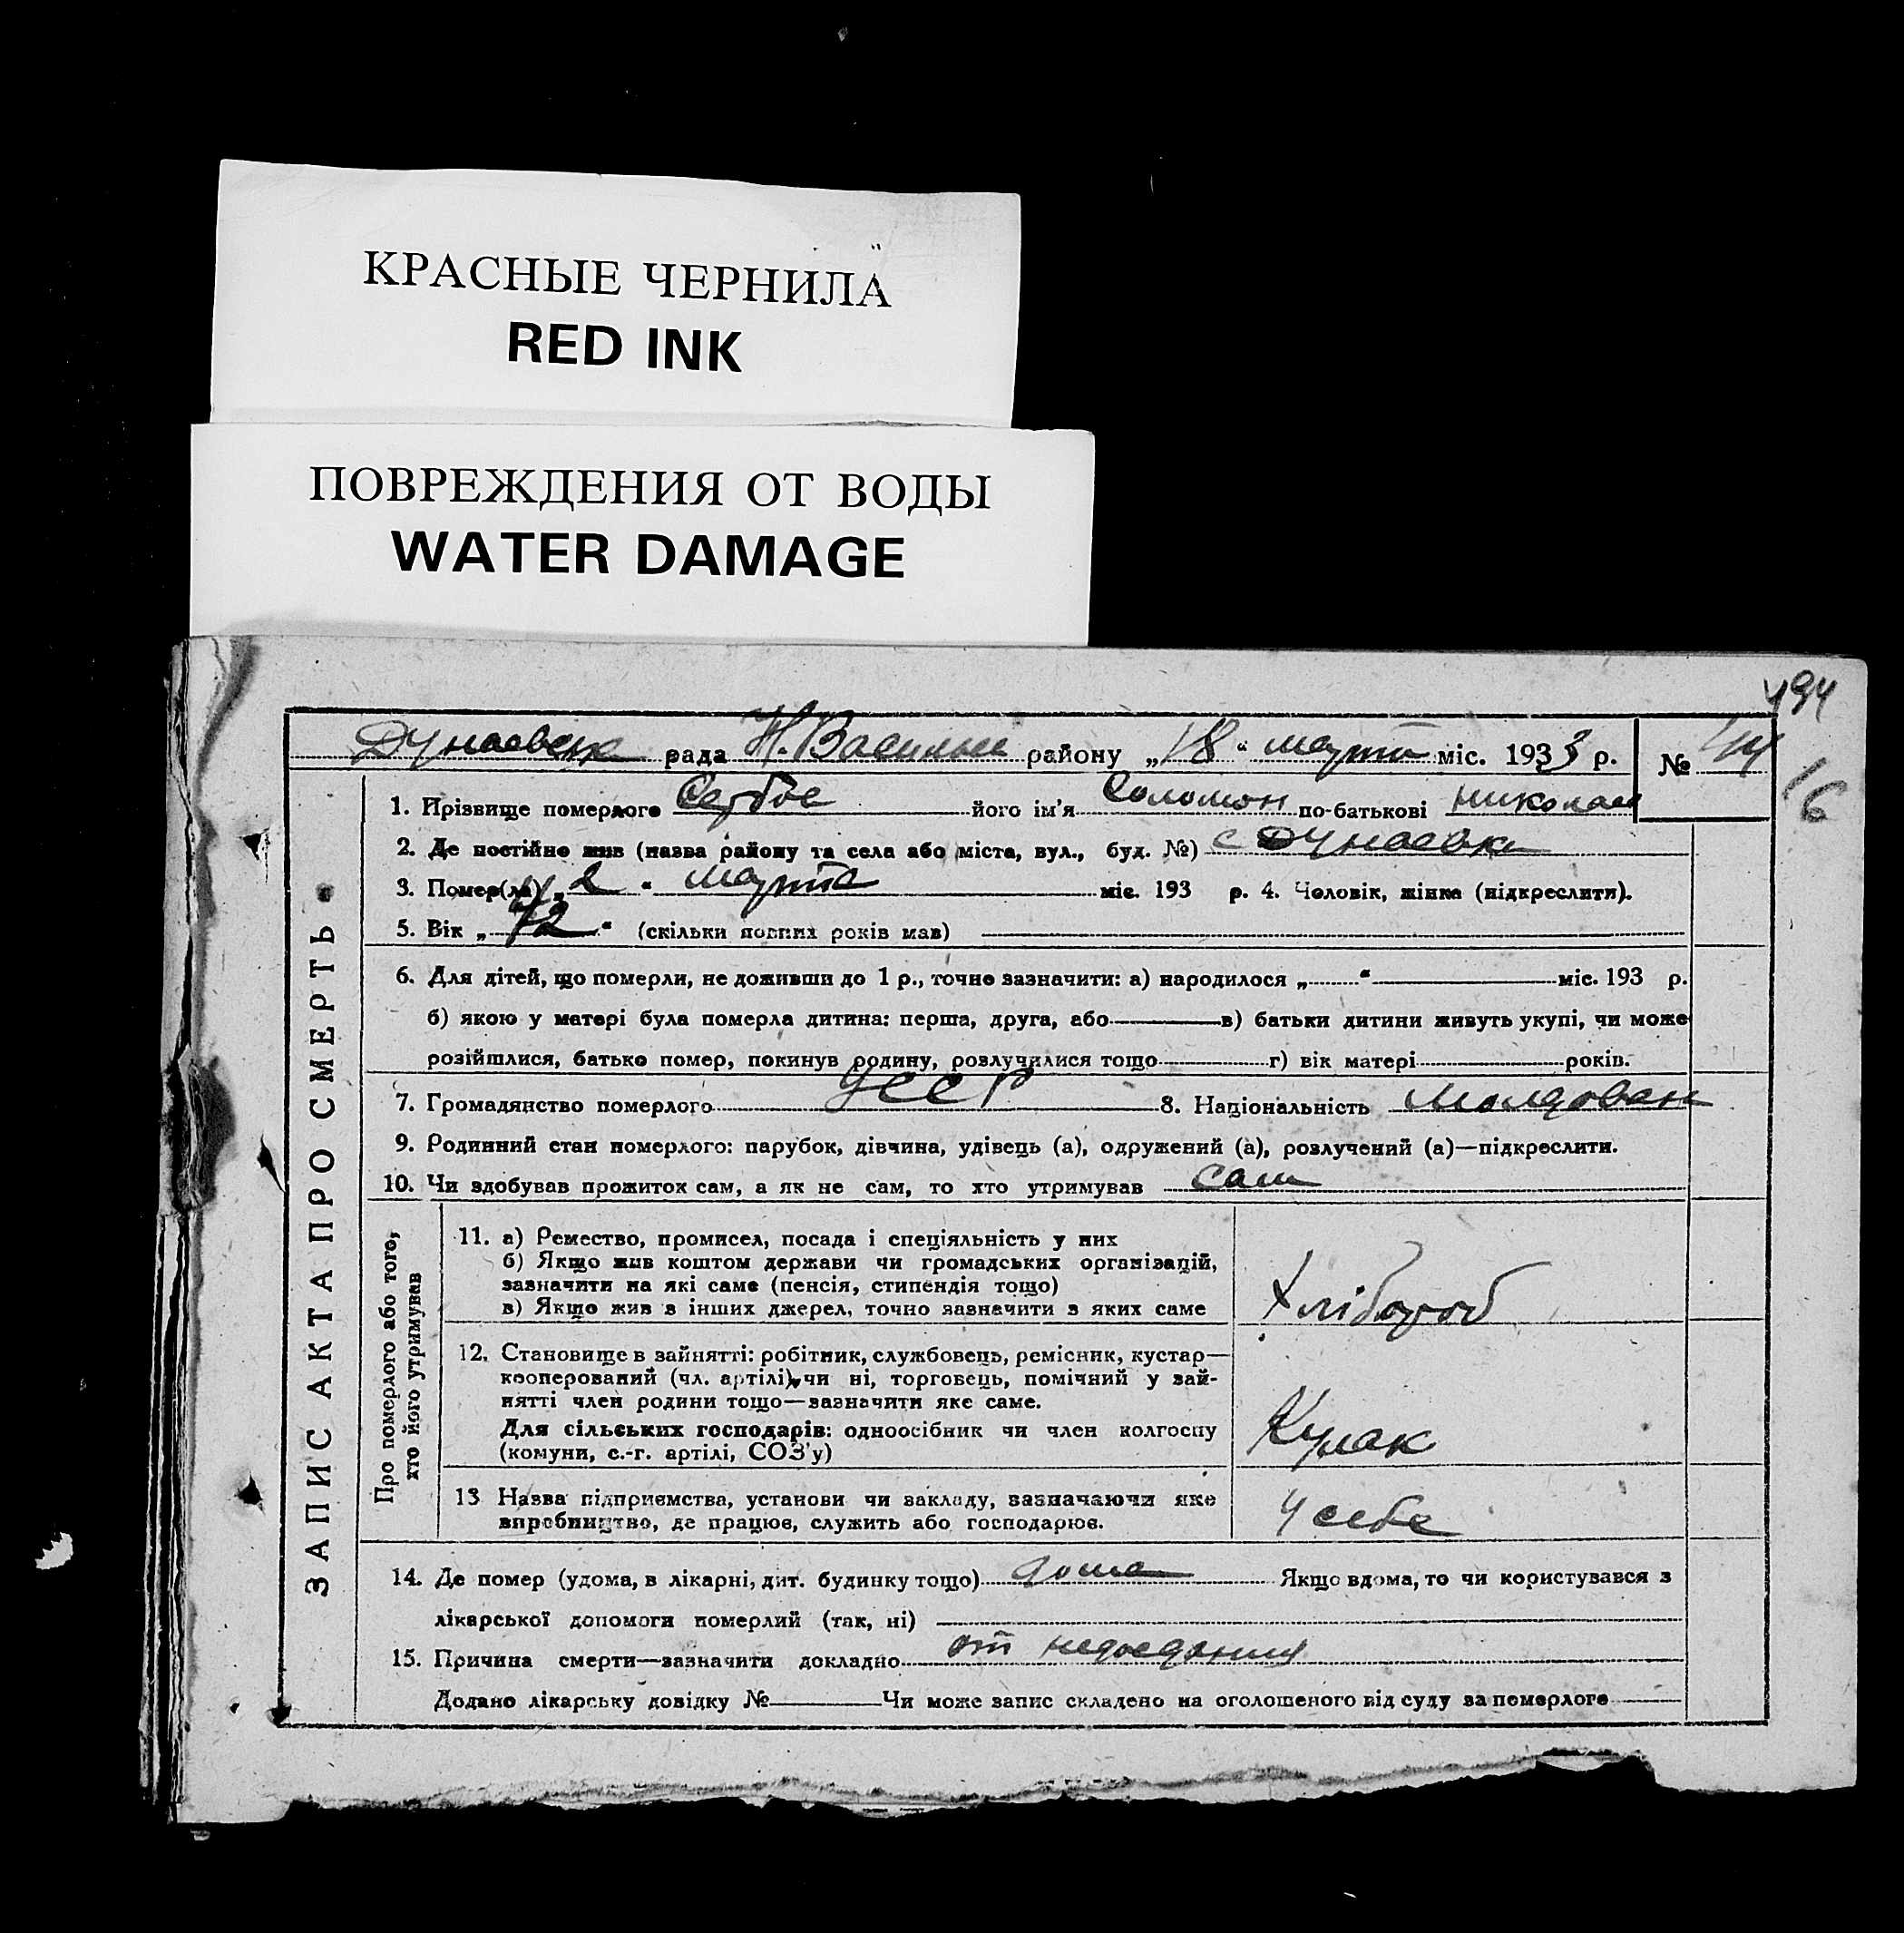 КРАСНЫЕ ЧЕРНИЛА
RED INK
ПОВРЕЖДЕНИЯ ОТ ВОДЫ
WATER DAMAGE
494
рада Н. Васильев району „18“ марта міс. 1933 р. №
16
ЗАПИС АКТА ПРО СМЕРТЬ
1. Прізвище померлого його ім'я Соломон по-батькові Николаев
2. Де постійно жив (назва району та села або міста, вул., буд. №) с Дунаевка
3. Помер(ла) „2“ марта міс. 193 р. 4. Чоловік, жінка (підкреслити).
5. Вік „72“ (скільки повних років мав)
6. Для дітей, що померли, не доживши до 1 р., точно зазначити: а) народилося „ “ міс. 193 р.
б) якою у матері була померла дитина: перша, друга, або в) батьки дитини живуть укупі, чи може
розійшлися, батько помер, покинув родину, розлучилися тощо г) вік матері років.
7. Громадянство померлого УССР 8. Національність Молдован
9. Родинний стан померлого: парубок, дівчина, удівець (а), одружений (а), розлучений (а)—підкреслити.
10. Чи здобував прожиток сам, а як не сам, то хто утримував сам
Про померлого або того,
хто його утримував
11. а) Ремество, промисел, посада і спеціяльність у них
б) Якщо жив коштом держави чи громадських організацій,
зазначити на які саме (пенсія, стипендія тощо)
в) Якщо жив з інших джерел, точно зазначити з яких саме
Хлібороб
12. Становище в зайнятті: робітник, службовець, ремісник, кустар—
кооперований (чл. артілі) чи ні, торговець, помічний у зай-
нятті член родини тощо—зазначити яке саме.
Для сільських господарів: одноосібник чи член колгоспу
(комуни, с.-г. артілі, СОЗ'у)
Кулак
13 Назва підприємства, установи чи закладу, зазначаючи яке
виробництво, де працює, служить або господарює.
у себе
14. Де помер (удома, в лікарні, дит. будинку тощо) дома Якщо вдома, то чи користувався з
лікарської допомоги померлий (так, ні)
15. Причина смерти—зазначити докладно от недоедания
Додано лікарську довідку № Чи може запис складено на оголошеного від суду за померлого